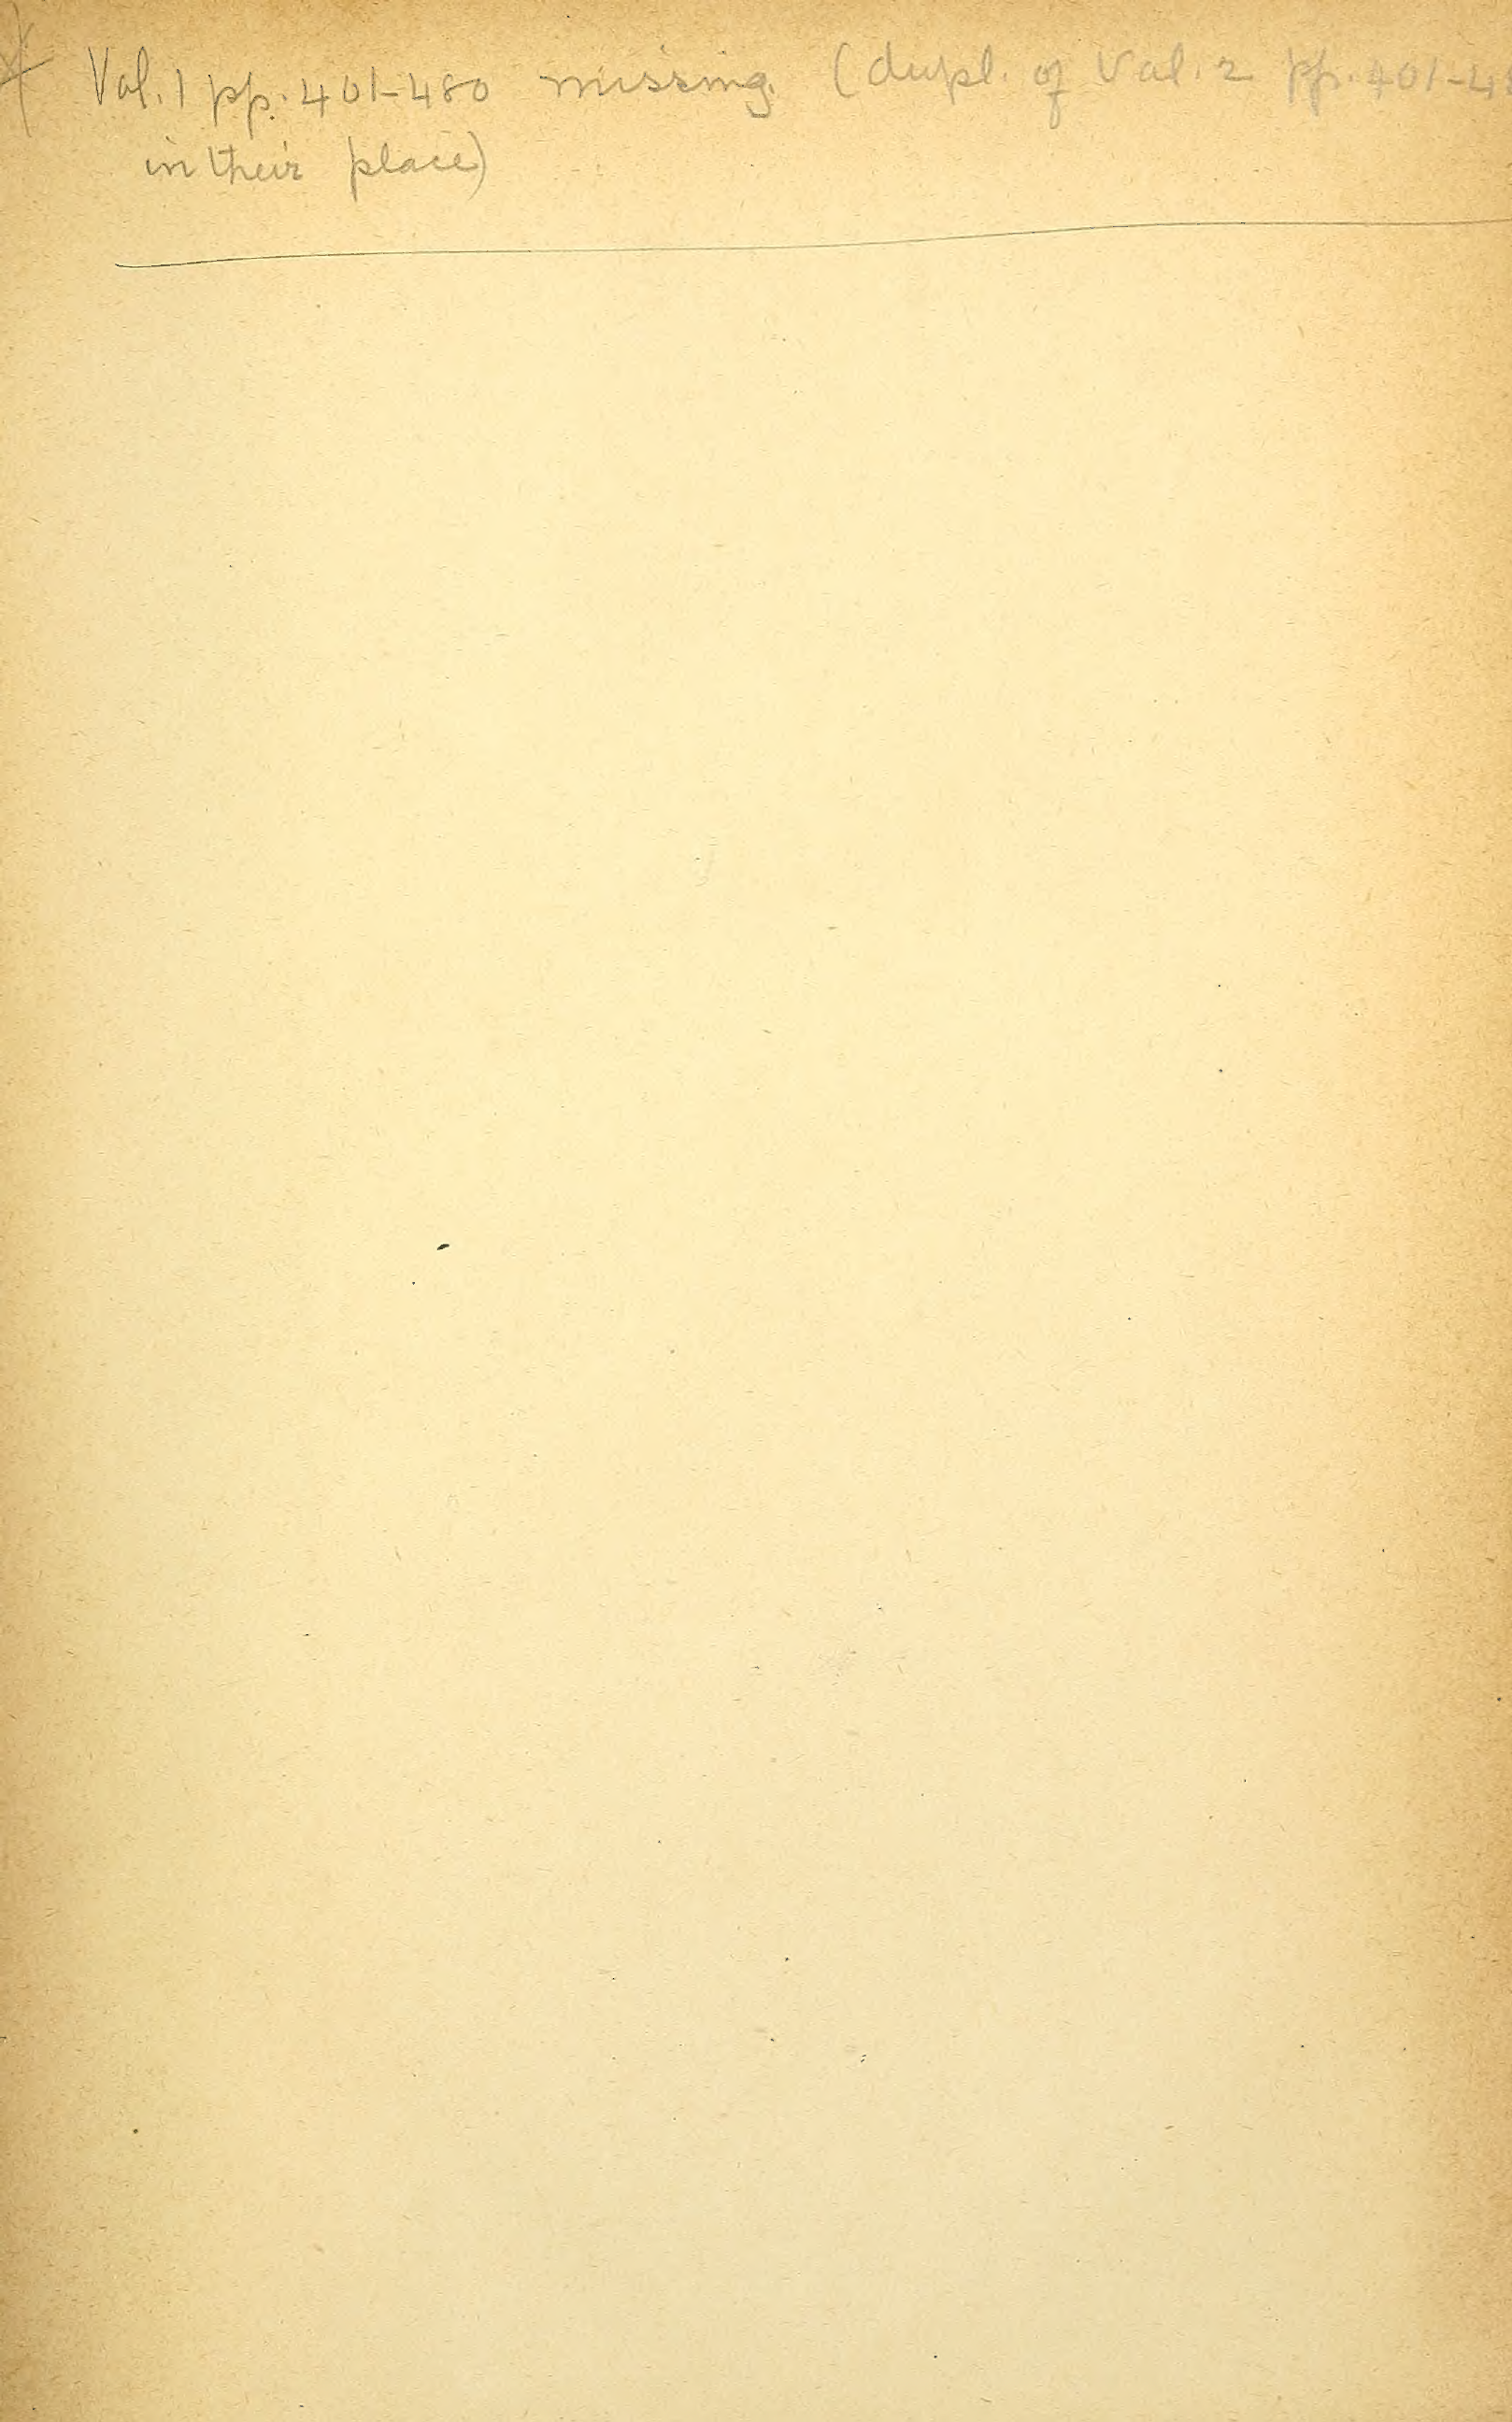 * Vol. 1 pp. 401-480 missing. (dupl. of Vol. 2 pp. 401-48
in their place)